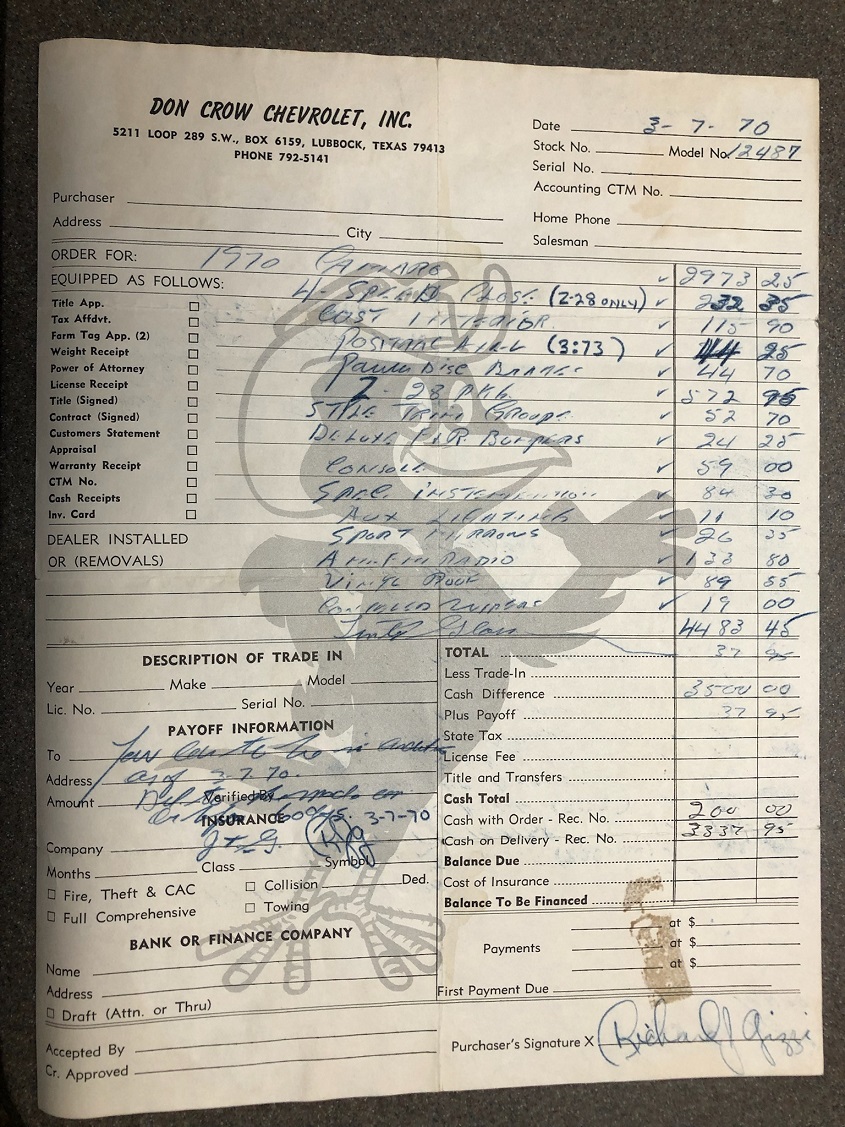 DON CROW CHEVROLET, INC.
5211 LOOP 289 S.W., BOX 6159, LUBBOCK, TEXAS 79413
PHONE 792-5141
Date 3-7-70
Stock No. Model No. 12487
Serial No.
Accounting CTM No.
Purchaser
Address City
Home Phone
Salesman
ORDER FOR: 1970 CAMARO 2973 25
EQUIPPED AS FOLLOWS: 4-SPEED CLOSE (Z-28 ONLY) 232 35
Title App. CUST INTERIOR 115 90
Tax Affdvt.
Farm Tag App. (2) POSITRACTION (3:73) 44 25
Weight Receipt
Power of Attorney POWER DISC BRAKES 44 70
License Receipt Z-28 PKG 572 95
Title (Signed) STYLE TRIM GROUP 52 70
Contract (Signed)
Customers Statement DELUXE F&R BUMPERS 24 25
Appraisal
Warranty Receipt CONSOLE 59 00
CTM No.
Cash Receipts SPEC. INSTRUMENTATION 84 30
Inv. Card AUX LIGHTING 11 10
DEALER INSTALLED SPORT MIRRORS 26 35
OR (REMOVALS) AM-FM RADIO 133 80
VINYL ROOF 89 55
CONCEALED WIPERS 19 00
Tinted Glass 4483 45
DESCRIPTION OF TRADE IN
Year Make Model
Lic. No. Serial No.
PAYOFF INFORMATION
To
Address as of 3-7-70.
Amount Verified By
INSURANCE 3-7-70
Company
Months Class Symbol
Fire, Theft & CAC Collision Ded.
Full Comprehensive Towing
BANK OR FINANCE COMPANY
Name
Address
Draft (Attn. or Thru)
Accepted By
Cr. Approved
TOTAL 37 95
Less Trade-In
Cash Difference 3500 00
Plus Payoff 37 95
State Tax
License Fee
Title and Transfers
Cash Total
Cash with Order - Rec. No. 200 00
Cash on Delivery - Rec. No. 3337 95
Balance Due
Cost of Insurance
Balance To Be Financed
at $
Payments at $
at $
First Payment Due
Purchaser's Signature X Richard J Gizzi